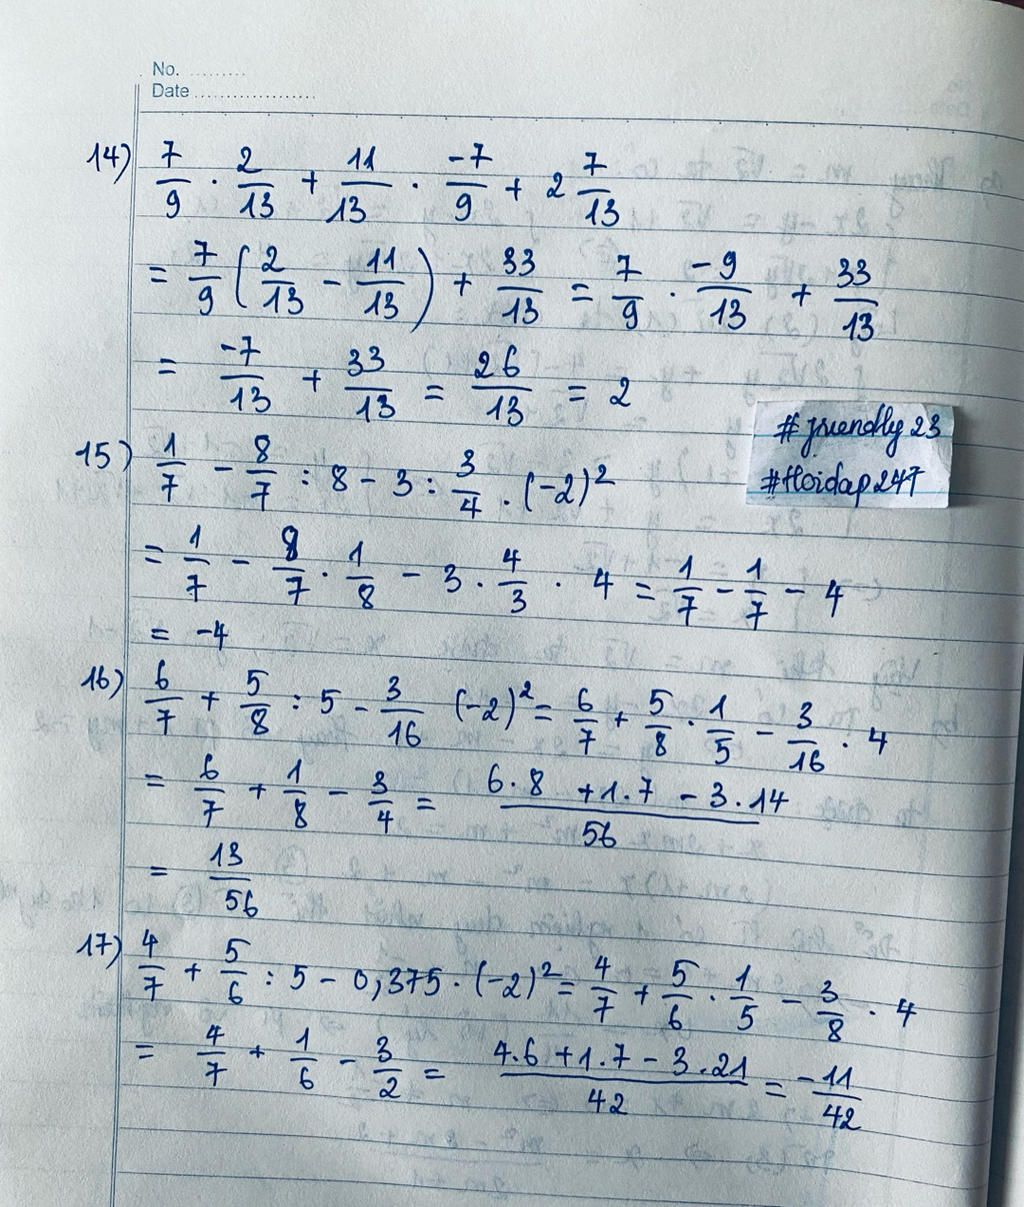 No. .........
Date ...................
14) 7/9 . 2/13 + 11/13 . -7/9 + 2 7/13
= 7/9 (2/13 - 11/13) + 33/13 = 7/9 . -9/13 + 33/13
= -7/13 + 33/13 = 26/13 = 2
#friendly23
#Hoidap247
15) 1/7 - 8/7 : 8 - 3 : 3/4 . (-2)²
= 1/7 - 8/7 . 1/8 - 3 . 4/3 . 4 = 1/7 - 1/7 - 4
= -4
16) 6/7 + 5/8 : 5 - 3/16 (-2)² = 6/7 + 5/8 . 1/5 - 3/16 . 4
= 6/7 + 1/8 - 3/4 = (6.8 + 1.7 - 3.14)/56
= 13/56
17) 4/7 + 5/6 : 5 - 0,375 . (-2)² = 4/7 + 5/6 . 1/5 - 3/8 . 4
= 4/7 + 1/6 - 3/2 = (4.6 + 1.7 - 3.21)/42 = -11/42